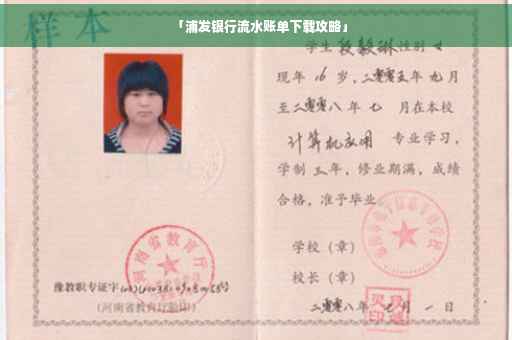 「浦发银行流水账单下载攻略」
样本
学生 段毅琳 性别 女
现年 16 岁，二零零五年 九月
至二零零八年 七 月在本校
计算机应用 专业学习，
学制 三年，修业期满，成绩
合格，准予毕业。
学校（章）
校长（章）
二零零八年 七月 一日
豫教职专证字
（河南省教育厅验印）
河南省教育厅